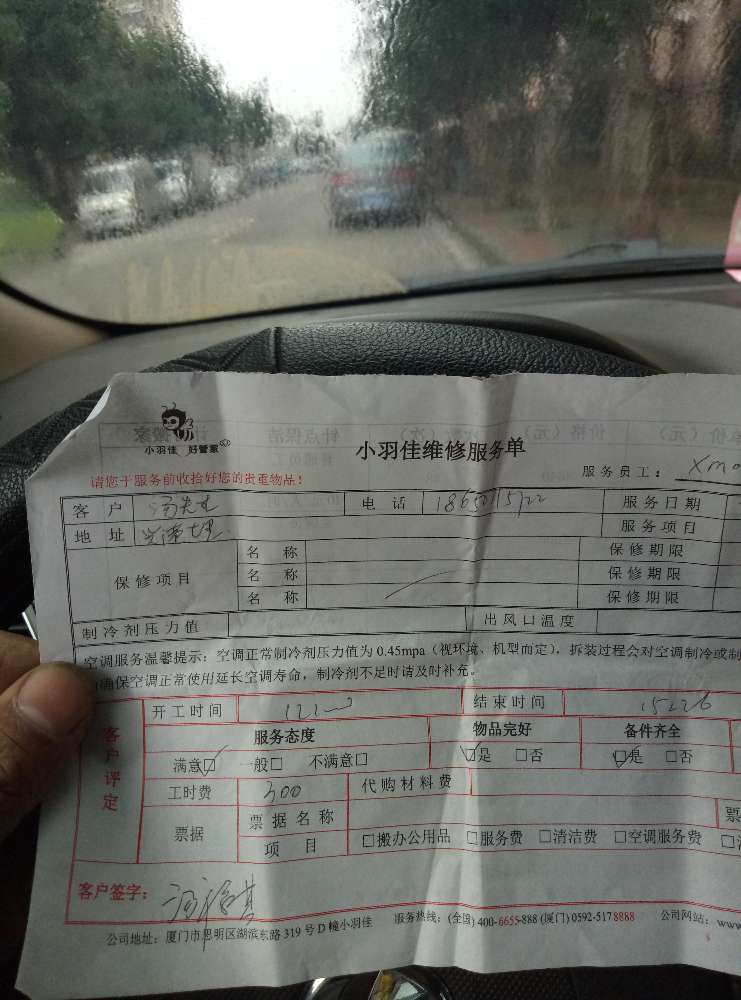 小羽佳 好管家
小羽佳维修服务单
请您于服务前收拾好您的贵重物品!
服务员工:
客户 汤先生 电话 服务日期
地址 服务项目
保修项目 名称 保修期限
名称 保修期限
名称 保修期限
制冷剂压力值 出风口温度
空调服务温馨提示:空调正常制冷剂压力值为0.45mpa(视环境、机型而定),拆装过程会对空调制冷或制
确保空调正常使用延长空调寿命,制冷剂不足时请及时补充。
客户评定
开工时间 结束时间
服务态度 物品完好 备件齐全
满意☑ 一般□ 不满意□ ☑是 □否 ☑是 □否
工时费 300 代购材料费
票据 票据名称 票
项目 □搬办公用品 □服务费 □清洁费 □空调服务费
客户签字:
公司地址:厦门市思明区湖滨东路319号D幢小羽佳 服务热线:(全国)400-6655-888(厦门)0592-5178888 公司网站:www